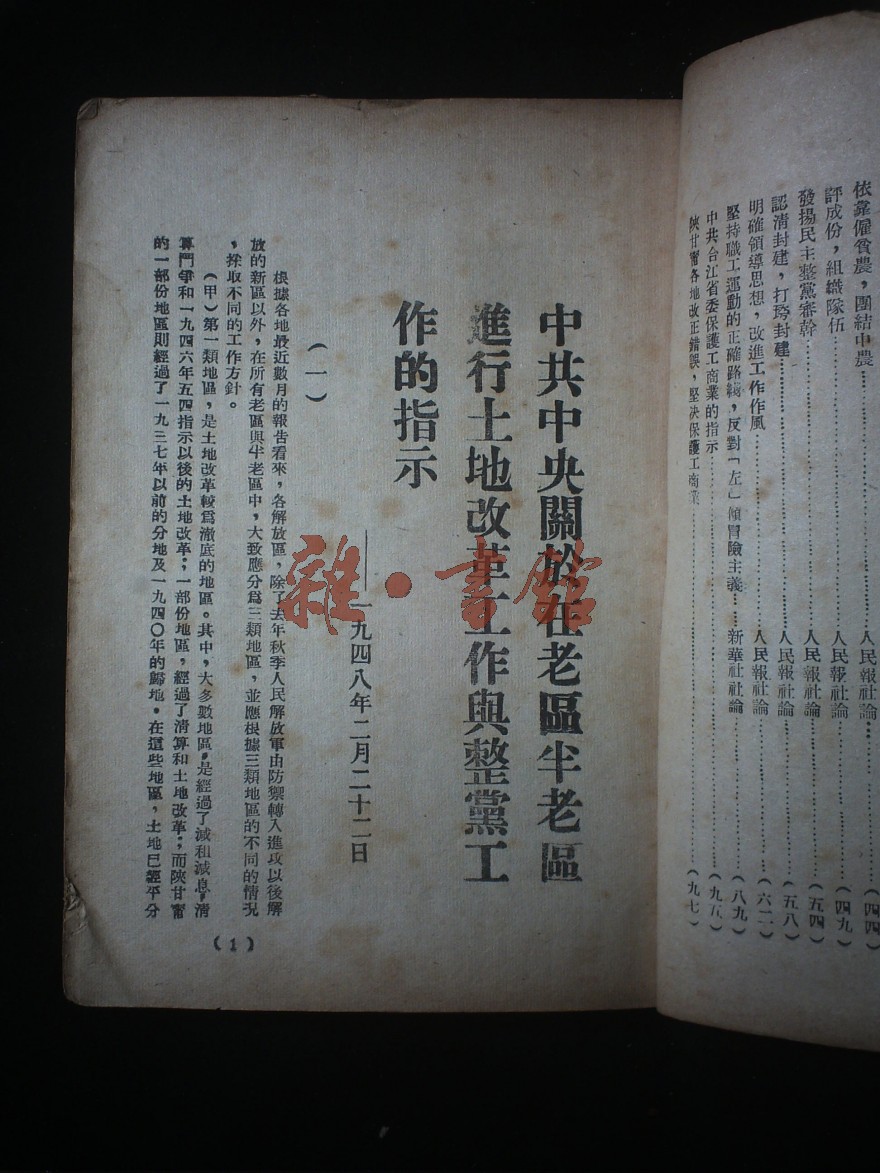 依靠僱貧農，團結中農……………………人民報社論……………………（四四）
評成份，組織隊伍……………………人民報社論……………………（四九）
發揚民主整黨審幹……………………人民報社論……………………（五四）
認清封建，打垮封建……………………人民報社論……………………（五八）
明確領導思想，改進工作作風……………………人民報社論……………………（六二）
堅持職工運動的正確路綫，反對「左」傾冒險主義……新華社社論……………………（八九）
中共合江省委保護工商業的指示……………………（九五）
陝甘甯各地改正錯誤，堅决保護工商業……………………（九七）
中共中央關於在老區半老區
進行土地改革工作與整黨工
作的指示
——一九四八年二月二十二日
（一）
根據各地最近數月的報告看來，各解放區，除了去年秋季人民解放軍由防禦轉入進攻以後解
放的新區以外，在所有老區與半老區中，大致應分爲三類地區，並應根據三類地區的不同的情况
，採取不同的工作方針。
（甲）第一類地區，是土地改革較爲澈底的地區。其中，大多數地區，是經過了減租減息，清
算鬥爭和一九四六年五四指示以後的土地改革；一部份地區，經過了清算和土地改革；而陝甘甯
的一部份地區則經過了一九三七年以前的分地及一九四〇年的歸地。在這些地區，土地已經平分
（1）
雜·書館